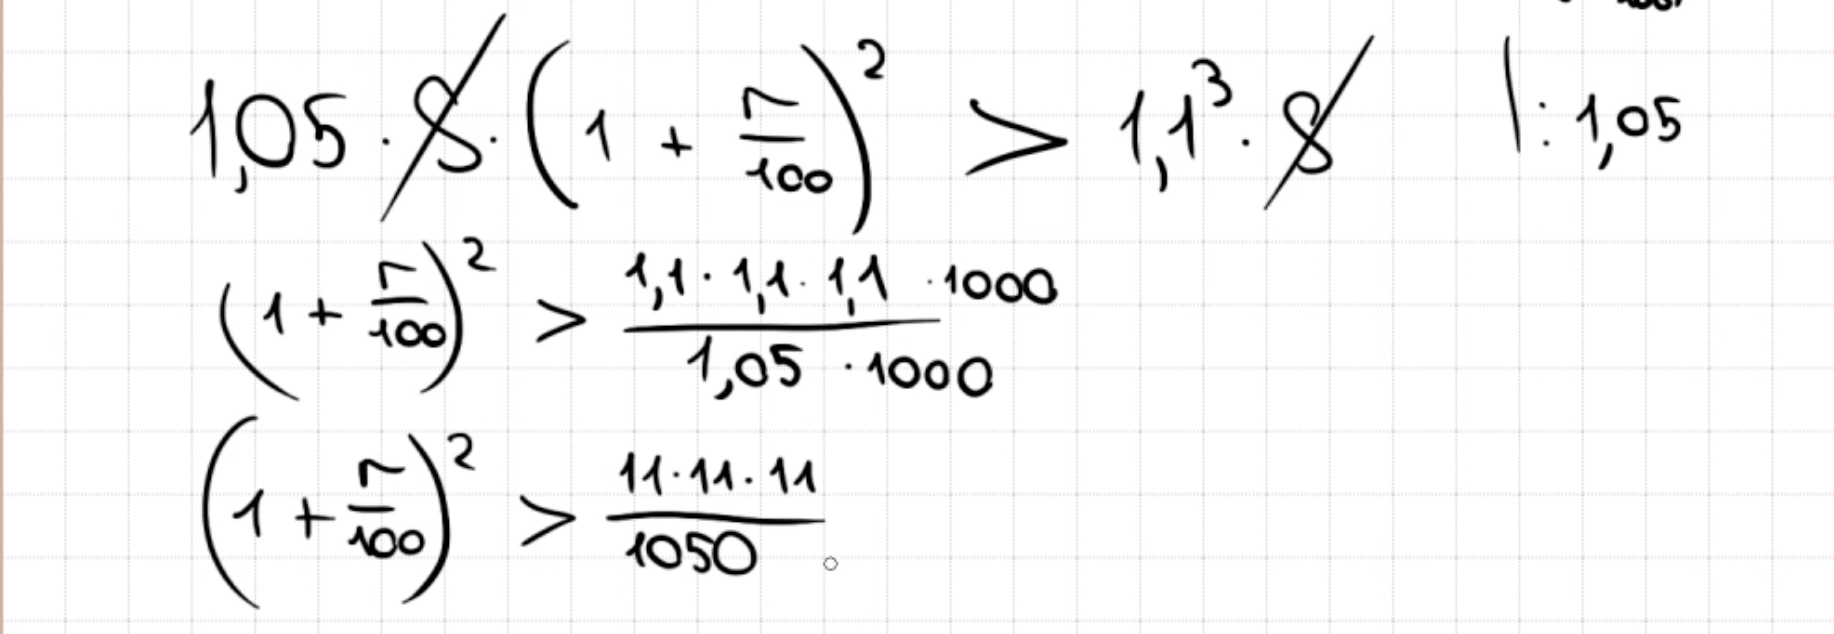 1,05 · S · (1 + r/100)² > 1,1³ · S |: 1,05
(1 + r/100)² > (1,1 · 1,1 · 1,1 · 1000)/(1,05 · 1000)
(1 + r/100)² > (11 · 11 · 11)/1050